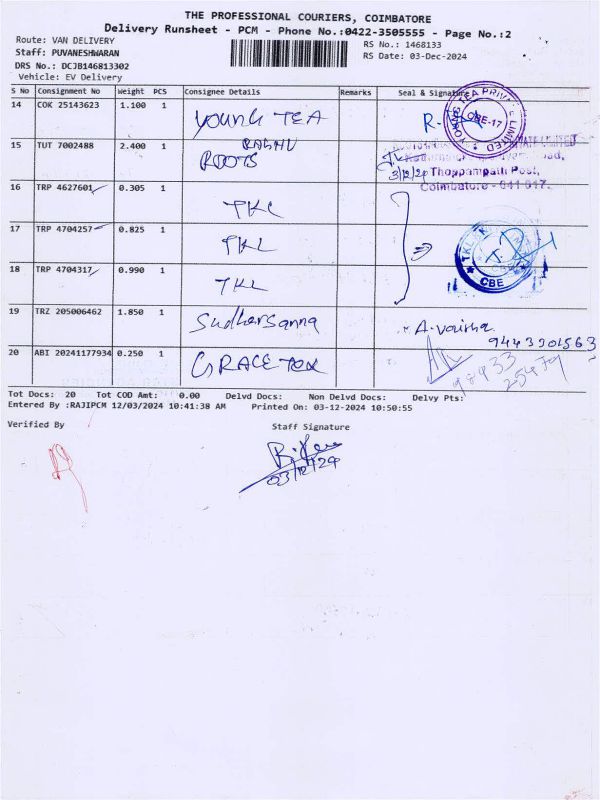 THE PROFESSIONAL COURIERS, COIMBATORE
Delivery Runsheet - PCM - Phone No.:0422-3505555 - Page No.:2
Route: VAN DELIVERY
RS No.: 1468133
Staff: PUVANESHWARAN
RS Date: 03-Dec-2024
DRS No.: DCJB146813302
Vehicle: EV Delivery
S No Consignment No Weight PCS Consignee Details Remarks Seal & Signature
14 COK 25143623 1.100 1 YOUNG TEA
CBE-17
15 TUT 7002488 2.400 1 RAGHU
ROOTS
3/12/24
Thoppampatti Post,
Coimbatore - 641 017.
16 TRP 4627601 0.305 1 TKL
17 TRP 4704257 0.825 1 TKL
TKL
CBE
18 TRP 4704317 0.990 1 TKL
19 TRZ 205006462 1.850 1 Sudharsanna
9443301563
20 ABI 20241177934 0.250 1 GRACE TEX
98433
Tot Docs: 20 Tot COD Amt: 0.00 Delvd Docs: Non Delvd Docs: Delvy Pts:
Entered By :RAJIPCM 12/03/2024 10:41:38 AM Printed On: 03-12-2024 10:50:55
Verified By Staff Signature
03/12/24